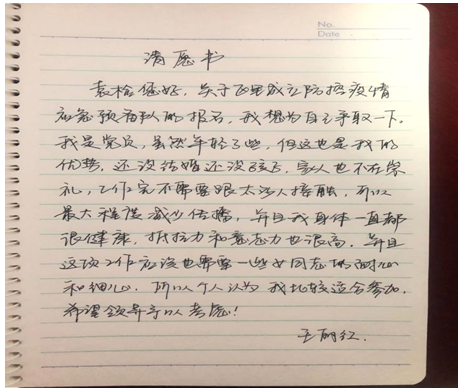 No.
Date
请愿书
袁检您好,关于区里成立防控疫情
应急预备队的报名,我想为自己争取一下。
我是党员,虽然年轻了些,但这也是我的
优势,还没结婚还没孩子,家人也不在常
礼,工作完不需要跟太多人接触,可以
最大程度减少传播,并且我身体一直都
很健康,抵抗力和意志力也很高,并且
这项工作应该也需要一些女同志的耐心
和细心,所以个人认为我比较适合参加,
希望领导予以考虑!
王丽红.